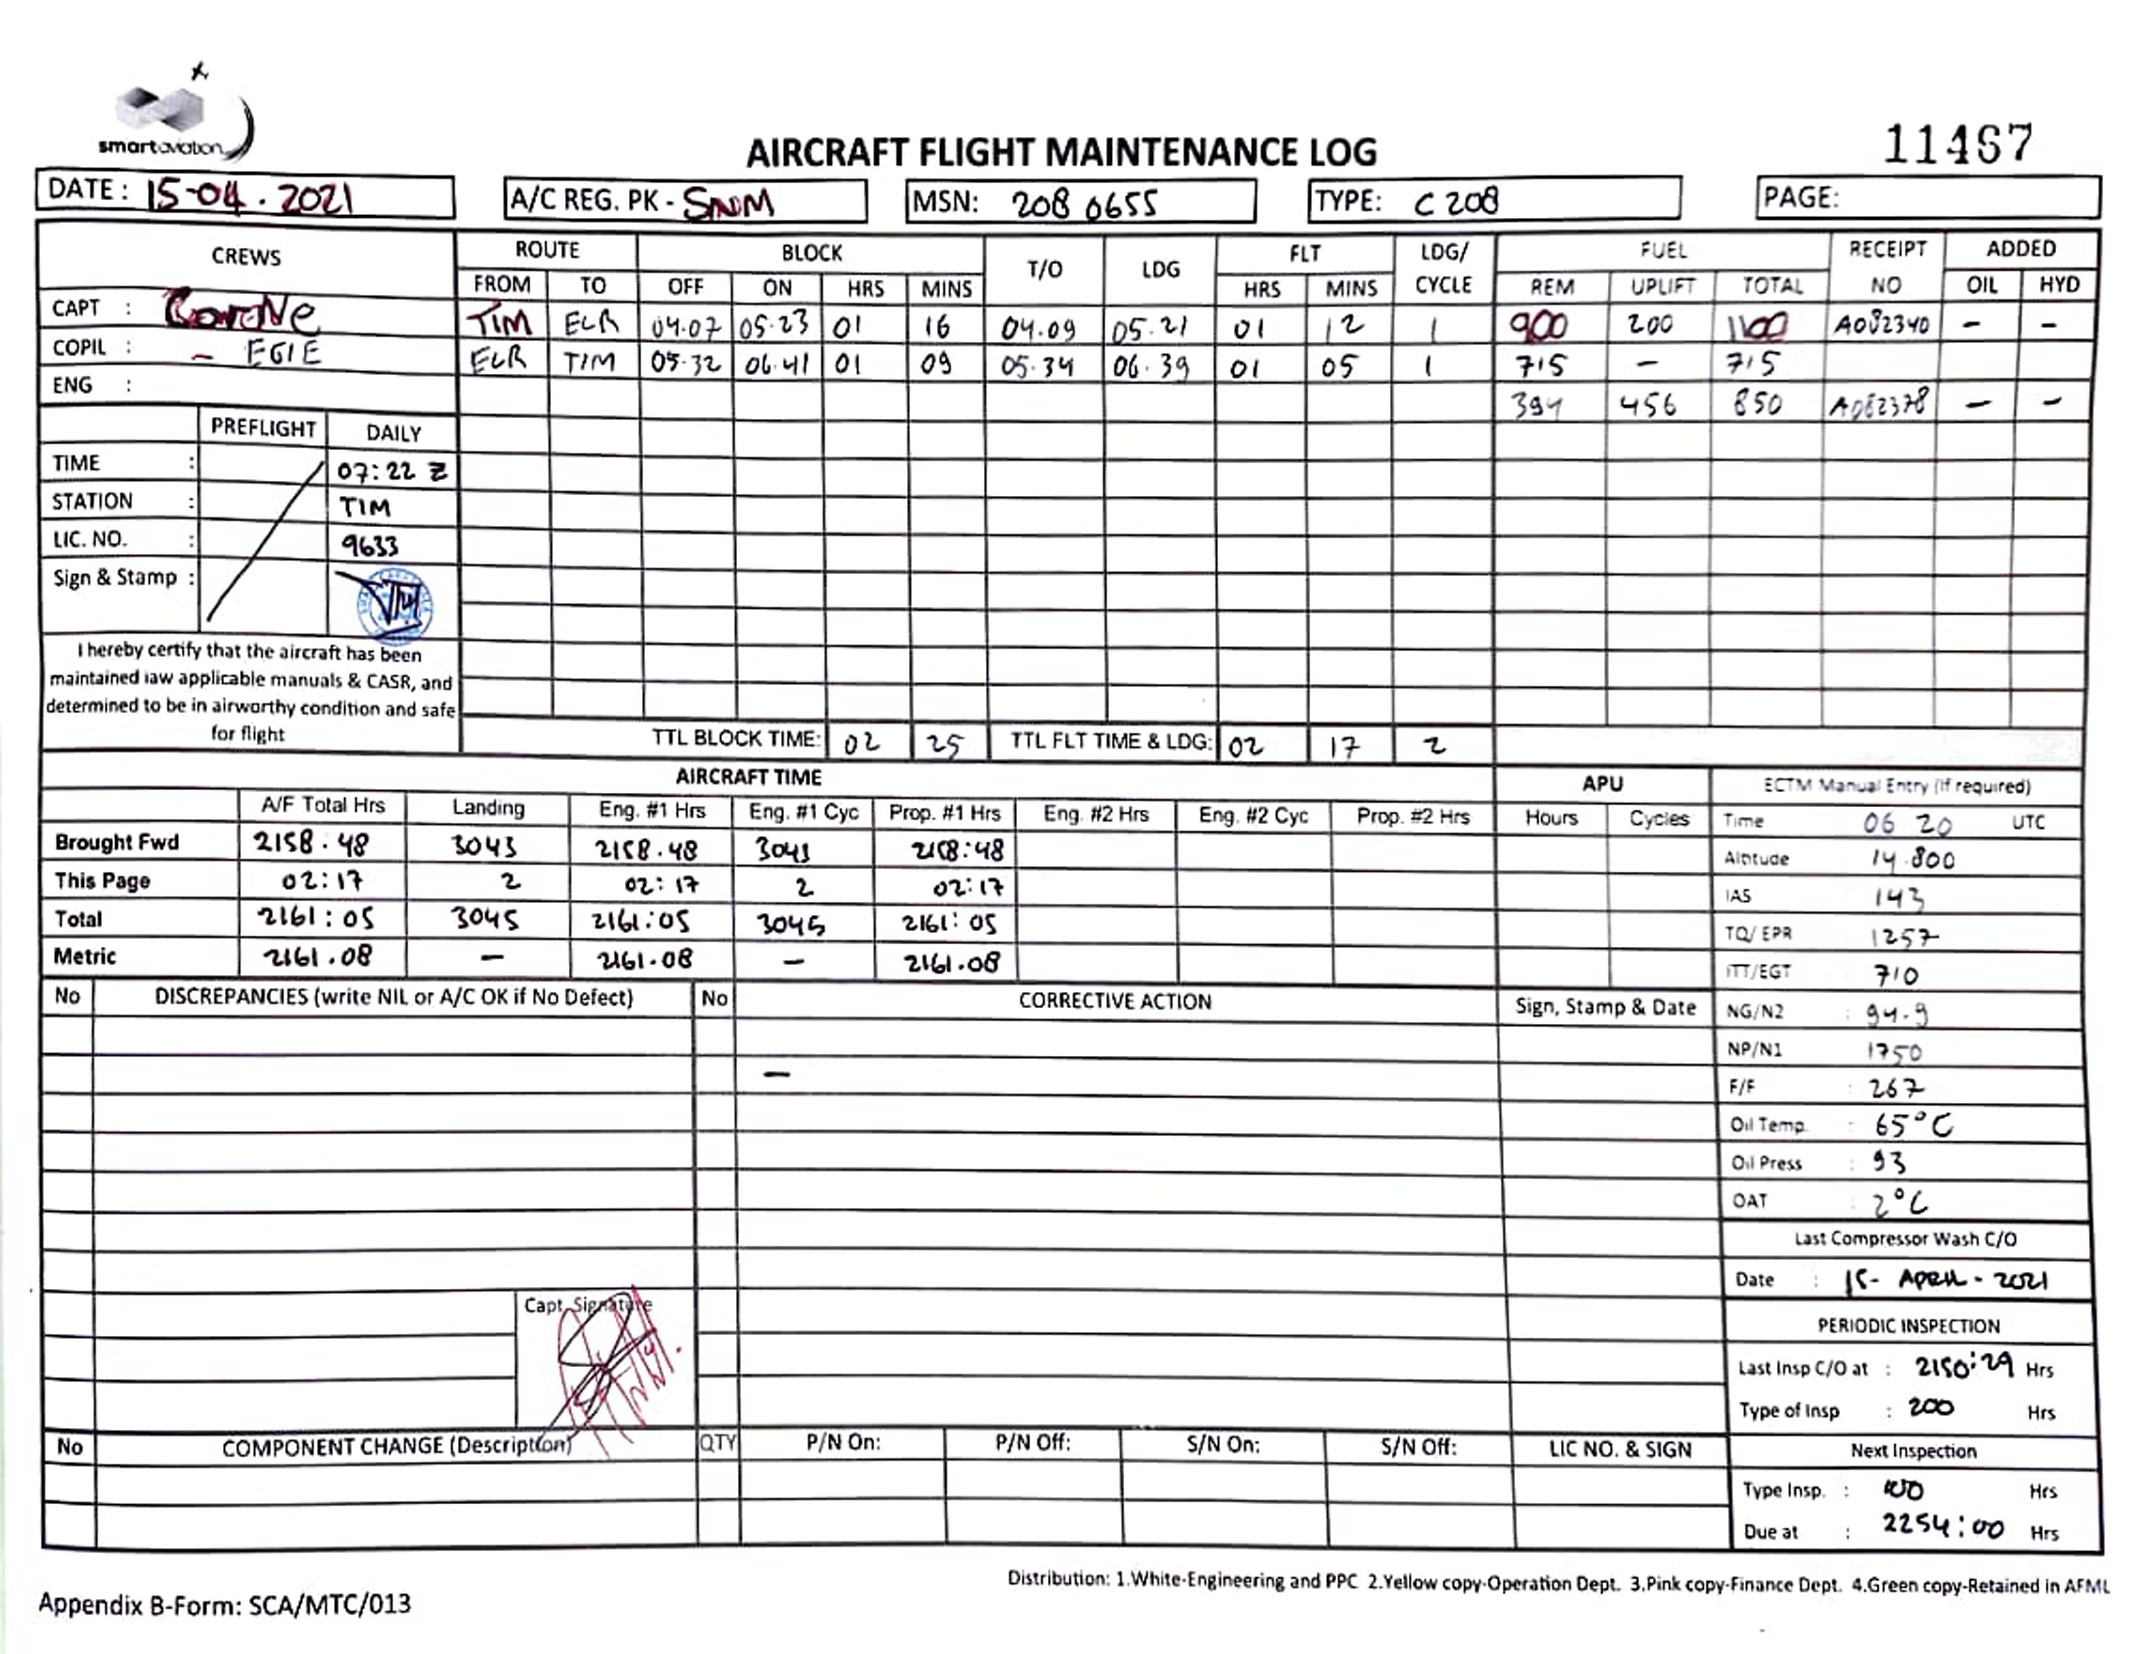 smartaviation
AIRCRAFT FLIGHT MAINTENANCE LOG
11467
DATE : 15-04.2021
A/C REG. PK - SNM
MSN: 208 0655
TYPE: C 208
PAGE:
CREWS ROUTE BLOCK T/O LDG FLT LDG/ CYCLE FUEL RECEIPT NO ADDED
FROM TO OFF ON HRS MINS HRS MINS REM UPLIFT TOTAL OIL HYD
CAPT :
TIM ELR 04.07 05.23 01 16 04.09 05.21 01 12 1 900 200 1100 A082340 - -
COPIL : - EGIE
ELR TIM 05.32 06.41 01 09 05.34 06.39 01 05 1 715 - 715
ENG :
394 456 850 A082378 - -
PREFLIGHT DAILY
TIME : 07:22 Z
STATION : TIM
LIC. NO. : 9633
Sign & Stamp :
I hereby certify that the aircraft has been
maintained iaw applicable manuals & CASR, and
determined to be in airworthy condition and safe
for flight
TTL BLOCK TIME: 02 25 TTL FLT TIME & LDG: 02 17 2
AIRCRAFT TIME
A/F Total Hrs Landing Eng. #1 Hrs Eng. #1 Cyc Prop. #1 Hrs Eng. #2 Hrs Eng. #2 Cyc Prop. #2 Hrs
Brought Fwd 2158.48 3043 2158.48 3043 2158:48
This Page 02:17 2 02:17 2 02:17
Total 2161:05 3045 2161:05 3045 2161:05
Metric 2161.08 - 2161.08 - 2161.08
APU
Hours Cycles
ECTM Manual Entry (If required)
Time 06 20 UTC
Altitude 14.800
IAS 143
TQ/ EPR 1257
ITT/EGT 710
NG/N2 : 94.9
NP/N1 1750
F/F : 267
Oil Temp. : 65°C
Oil Press : 93
OAT : 2°C
Last Compressor Wash C/O
Date : 15- APRIL - 2021
PERIODIC INSPECTION
Last Insp C/O at : 2150:29 Hrs
Type of Insp : 200 Hrs
Next Inspection
Type Insp. : Hrs
Due at : 2254:00 Hrs
No DISCREPANCIES (write NIL or A/C OK if No Defect) No CORRECTIVE ACTION Sign, Stamp & Date
-
Capt. Signature
No COMPONENT CHANGE (Description) QTY P/N On: P/N Off: S/N On: S/N Off: LIC NO. & SIGN
Distribution: 1.White-Engineering and PPC 2.Yellow copy-Operation Dept. 3.Pink copy-Finance Dept. 4.Green copy-Retained in AFML
Appendix B-Form: SCA/MTC/013